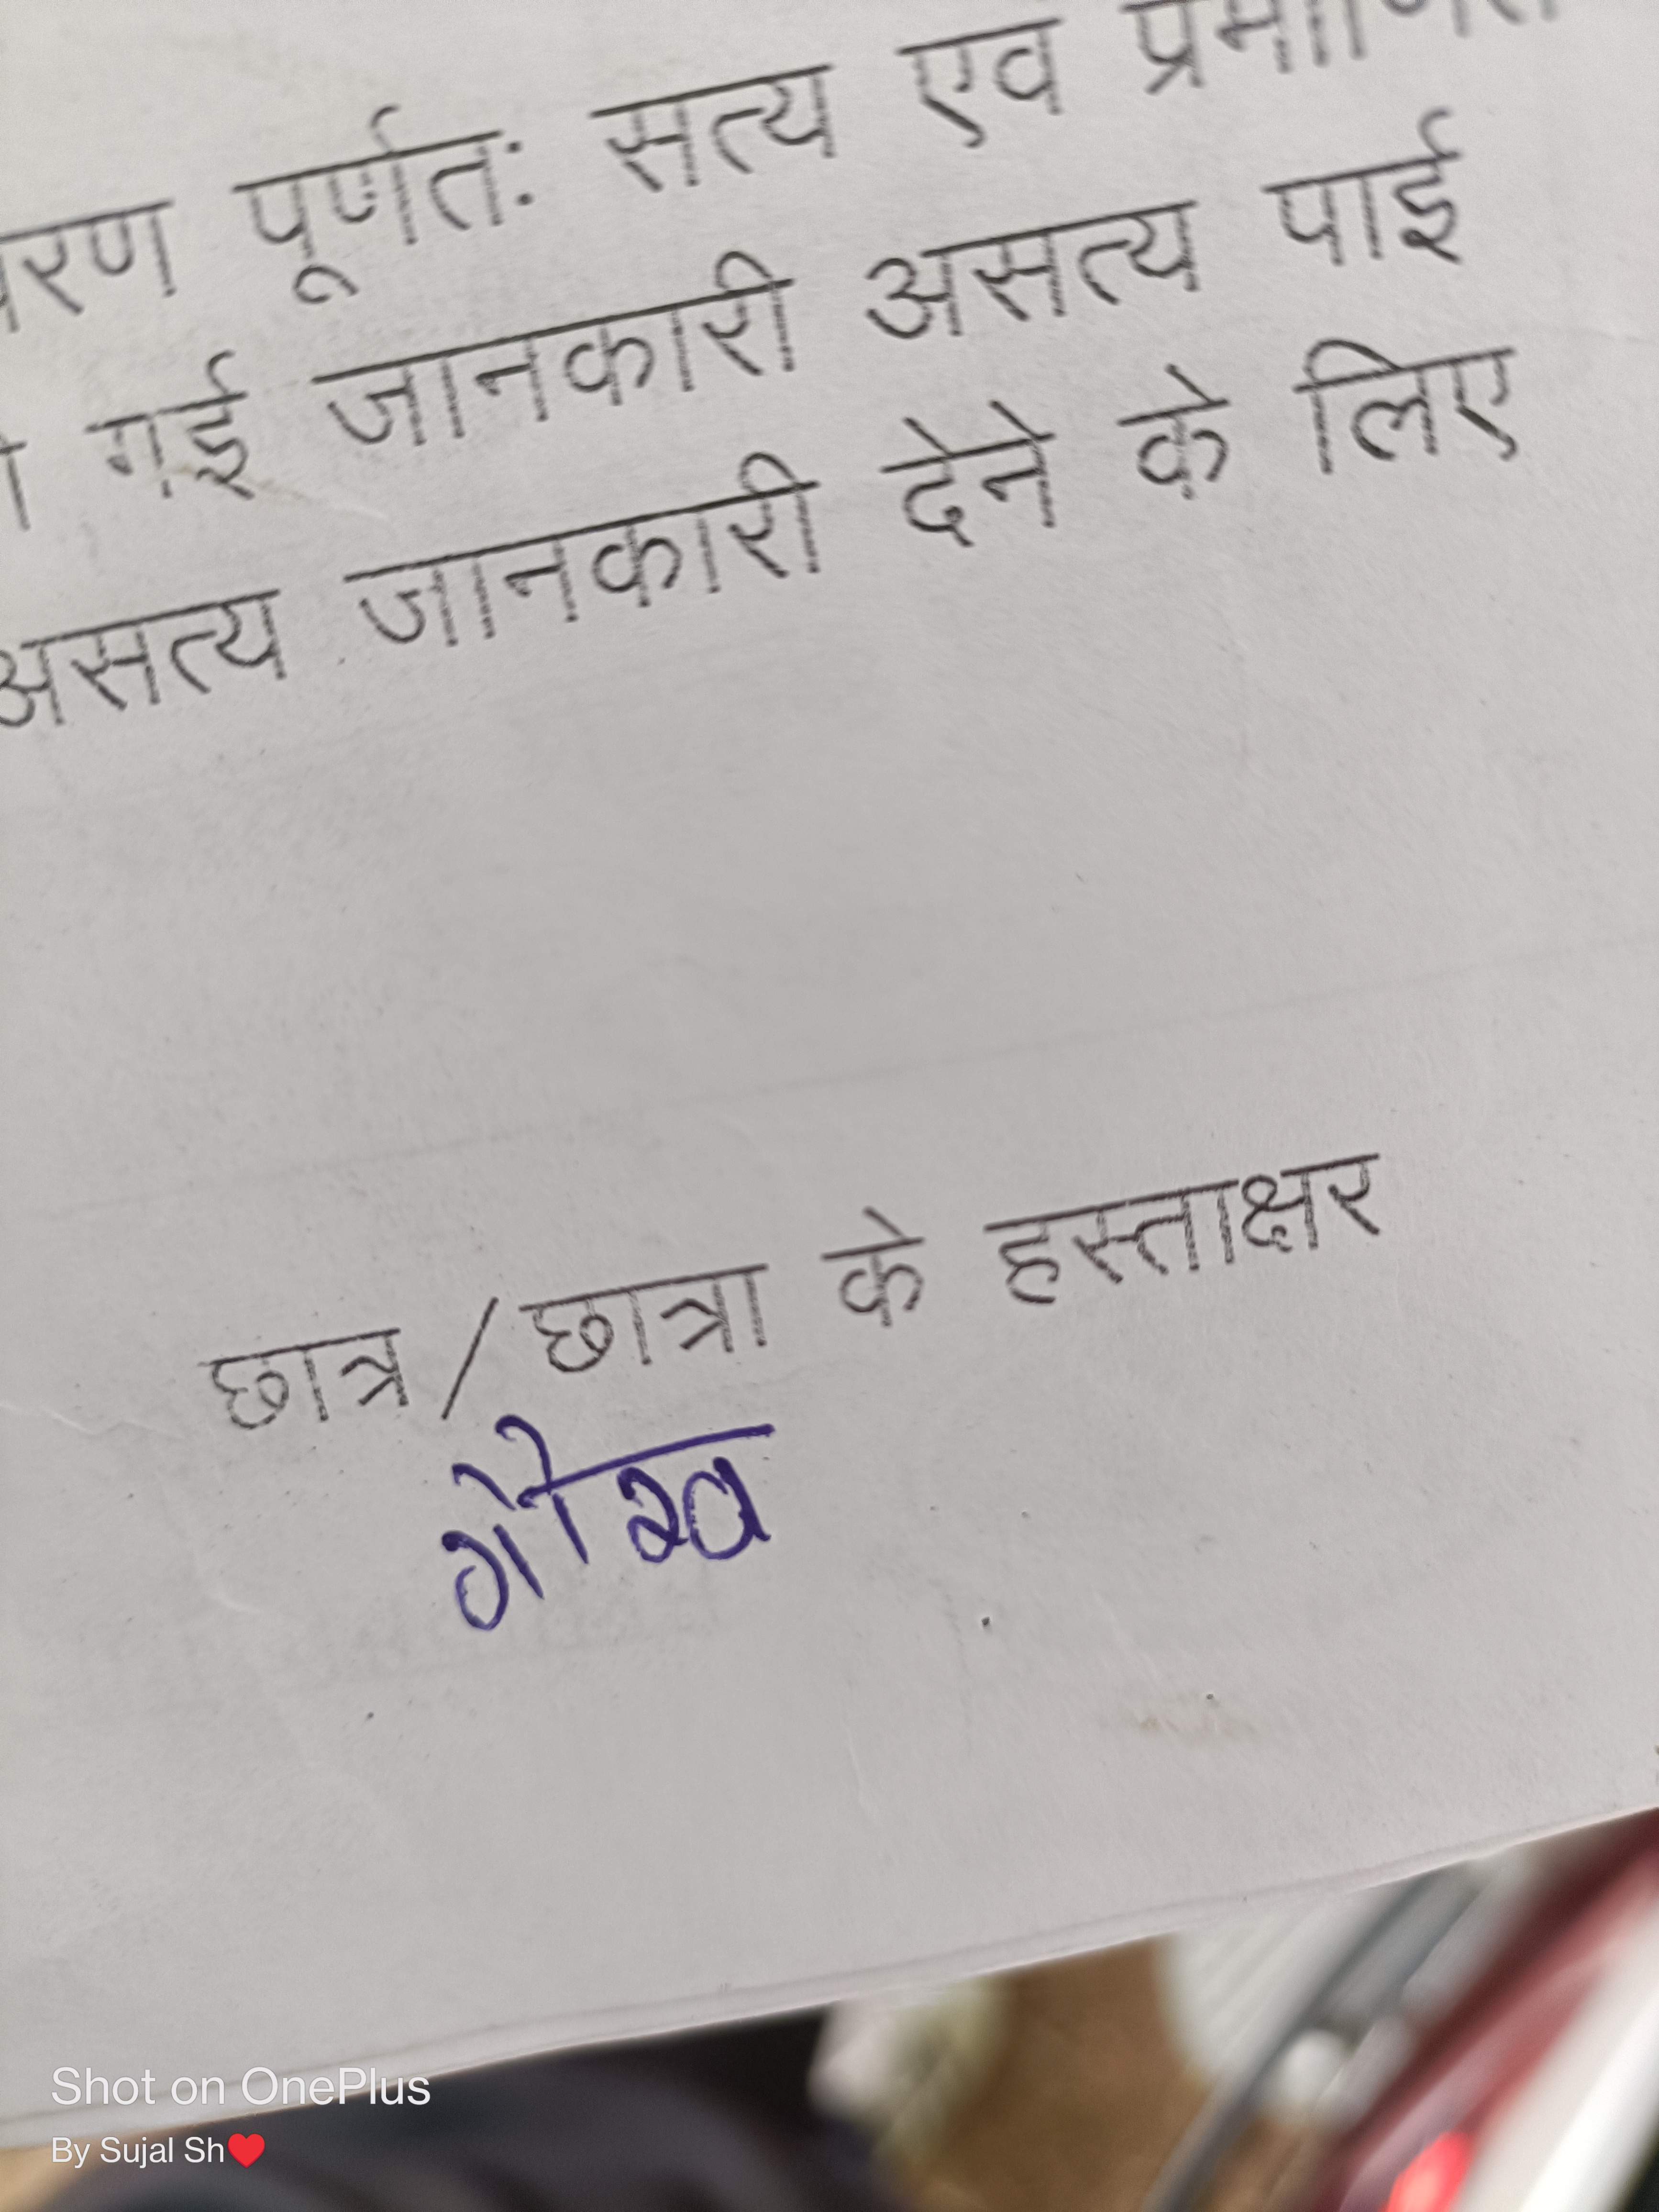 पूर्णत: सत्य एवं
गई जानकारी असत्य पाई
असत्य जानकारी देने के लिए
छात्र/छात्रा के हस्ताक्षर
गौरव
Shot on OnePlus
By Sujal Sh❤️